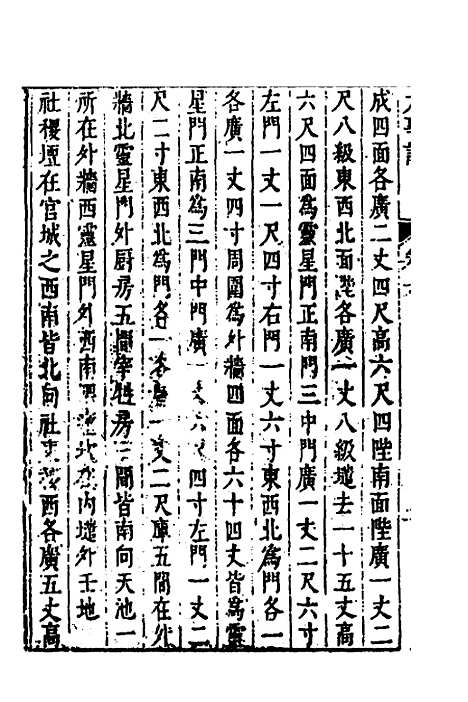 成四面各廣二丈四尺高六尺四陛南面陛廣一丈二
尺八級東西北面陛各廣一丈八級壝去一十五丈高
六尺四面為靈星門正南門三中門廣一丈二尺六寸
左門一丈一尺四寸右門一丈六寸東西北為門各一
各廣一丈四寸周圍為外牆四面各六十四丈皆為靈
星門正南為三門中門廣一丈六尺四寸左門一丈二
尺二寸東西北為門各一各廣一丈二尺庫五間在外
牆北靈星門外厨房五間宰牲房三間皆南向天池一
所在外牆西靈星門外西南在內壝外壬地
社稷壇在宮城之西南皆北向社東稷西各廣五丈高